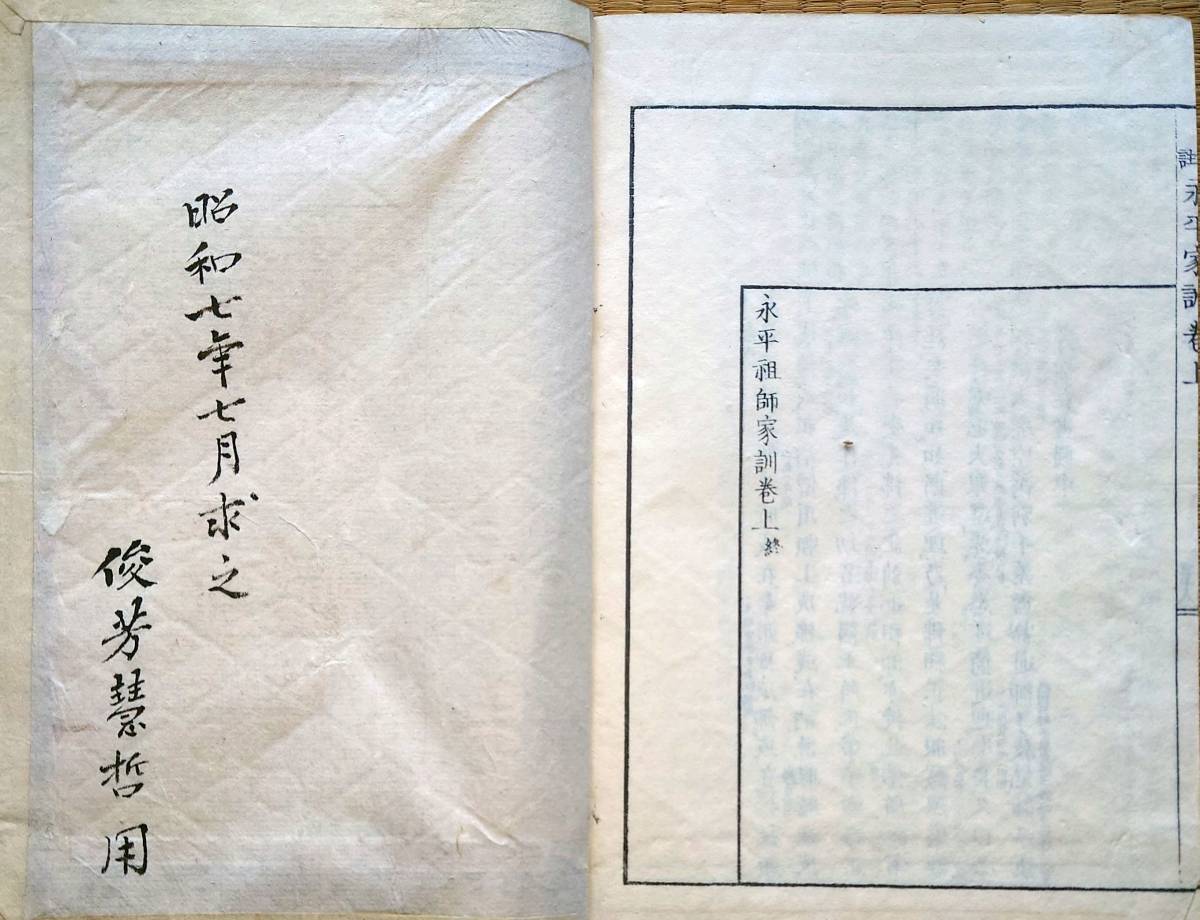 註永平家訓卷上
永平祖師家訓卷上終
昭和七年七月求之
俊芳慧哲用